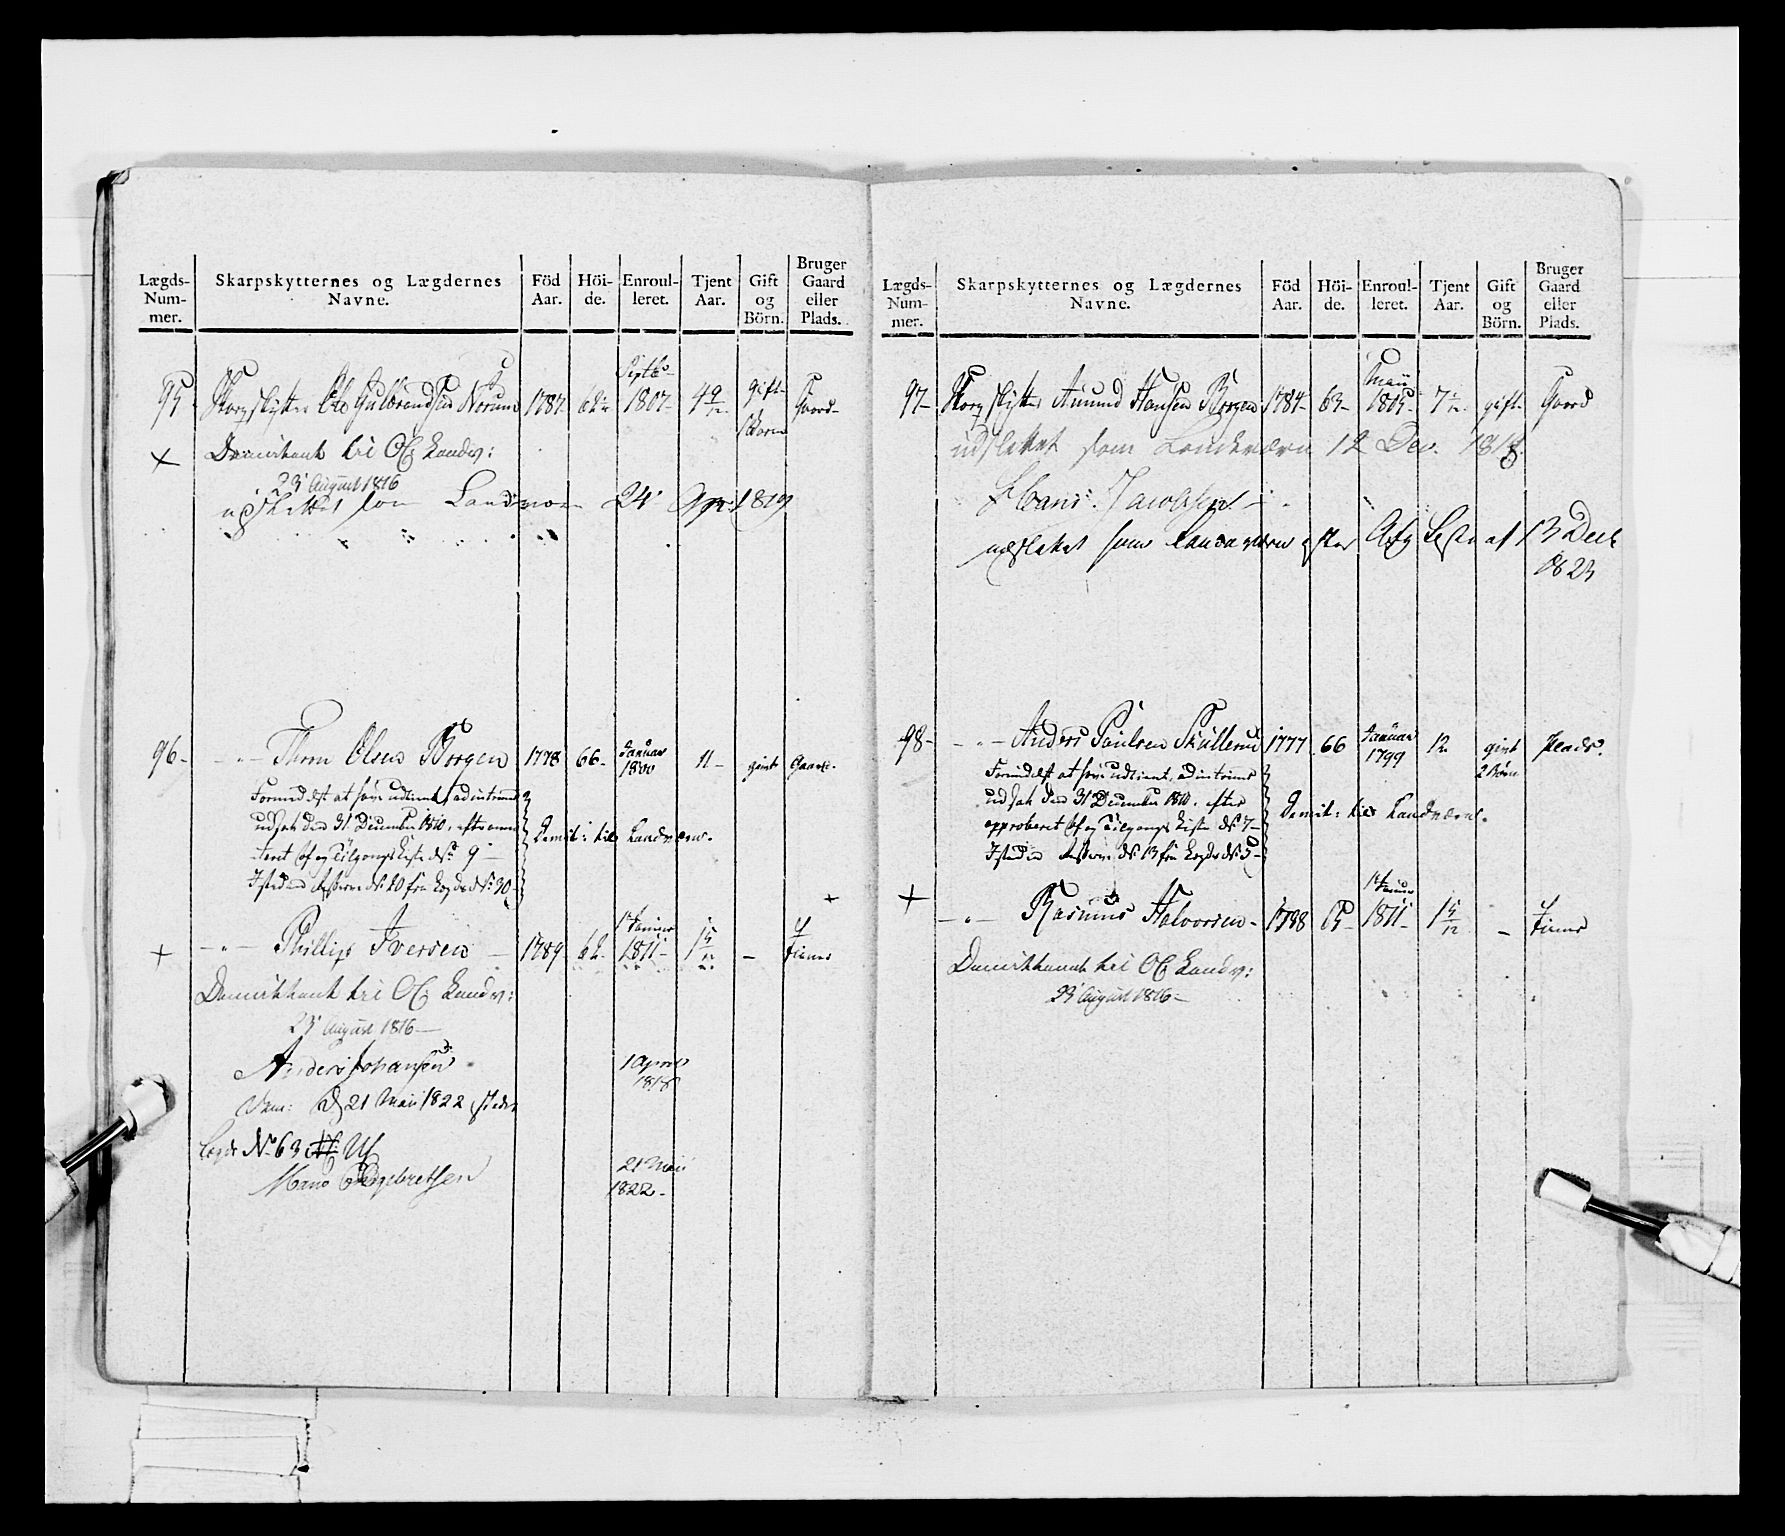 Lægds-Num-mer.
Skarpskytternes og Lægdernes Navne.
Föd Aar.
Höi-de.
Enroul-leret.
Tjent Aar.
Gift og Börn.
Bruger Gaard eller Plads.
95 Skarpskytter Ole Gulbrandsen Norum 1787 62 Septbr 1807 4 9/12 gift 1 Barn Gaard
× Demitteret til Landv:
23 August 1816
udskettet som Landværn 24 Apr 1819
96 - " - Thron Olsen Borgen 1778 66 Januar 1800 11 givt Gaard.
Formedelst at have udtient, ad interims
udsat den 31 December 1810, efter
Tilgangs Liste No 9
Isteden Reserve No 20 fra Lægds No 30
Demit: til Landværn.
+ - " - Phillip Iversen 1789 62 1 Januar 1811 1 5/12 - tiener
til Landv:
23 August 1816
Anders Johansen 1 April 1818
Dem: d 21 Maii 1822, isteden
Lægds No 63
Hans Engebretsen 21 Maii 1822
Lægds-Num-mer.
Skarpskytternes og Lægdernes Navne.
Föd Aar.
Höi-de.
Enroul-leret.
Tjent Aar.
Gift og Börn.
Bruger Gaard eller Plads.
97 Skarpskytter Amund Hansen Borgen 1784 63 Maii 1805 7 gift Gaard
udslettet som Landeværn 12 Dec. 1818
Hans Jacobsen
udslettet som Landeværn efter Afg Liste af 13 Decb
1823
98 - " - Anders Paulsen Skullerud 1777 66 Januar 1799 12 givt 2 Børn Plads.
Formedelst at have udtient, ad interims
udsat den 31 December 1810, efter
approberet Af og Tilgangs Liste No 7
Isteden Reserve No 13 fra Lægds No 5
Demit: til Landværn.
+ - " - Rasmus Halvorsen 1788 1 Januar 1811 1 5/12 - tiener
til Landv:
23 August 1816